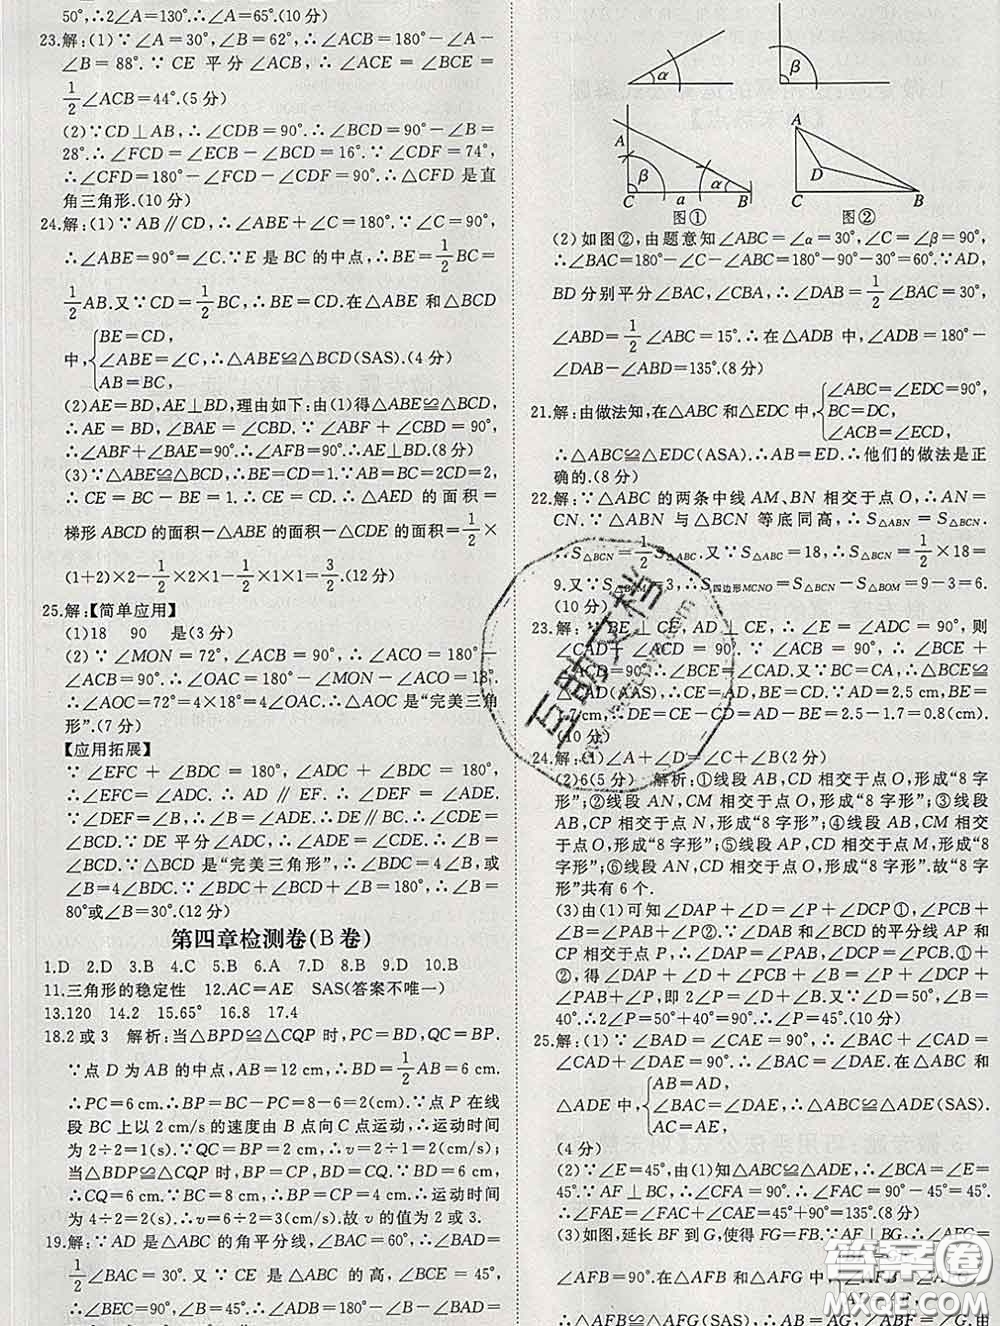 50°,∴2∠A=130°.∴∠A=65°.(10分)
23.解:(1)∵∠A=30°,∠B=62°,∴∠ACB=180°-∠A-
∠B=88°.∵CE平分∠ACB,∴∠ACE=∠BCE=
1/2∠ACB=44°.(5分)
(2)∵CD⊥AB,∴∠CDB=90°.∴∠BCD=90°-∠B=
28°.∴∠FCD=∠ECB-∠BCD=16°.∵∠CDF=74°,
∴∠CFD=180°-∠FCD-∠CDF=90°.∴△CFD是直
角三角形.(10分)
24.解:(1)∵AB∥CD,∴∠ABE+∠C=180°.∵∠C=90°,
∴∠ABE=90°=∠C.∵E是BC的中点,∴BE=1/2BC=
1/2AB.又∵CD=1/2BC,∴BE=CD.在△ABE和△BCD
中,{BE=CD,
∠ABE=∠C,∴△ABE≌△BCD(SAS).(4分)
AB=BC,
(2)AE=BD,AE⊥BD,理由如下:由(1)得△ABE≌△BCD,
∴AE=BD,∠BAE=∠CBD.∵∠ABF+∠CBD=90°,
∴∠ABF+∠BAE=90°.∴∠AFB=90°.∴AE⊥BD.(8分)
(3)∵△ABE≌△BCD,∴BE=CD=1.∵AB=BC=2CD=2,
∴CE=BC-BE=1.∴CE=CD.∴△AED的面积=
梯形ABCD的面积-△ABE的面积-△CDE的面积=1/2×
(1+2)×2-1/2×2×1-1/2×1×1=3/2.(12分)
25.解:【简单应用】
(1)18 90 是(3分)
(2)∵∠MON=72°,∠ACB=90°,∴∠ACO=180°-
∠ACB=90°.∴∠OAC=180°-∠MON-∠ACO=18°.
∴∠AOC=72°=4×18°=4∠OAC.∴△AOC是“完美三角
形”.(7分)
【应用拓展】
∵∠EFC+∠BDC=180°,∠ADC+∠BDC=180°,
∴∠EFC=∠ADC.∴AD∥EF.∴∠DEF=∠ADE.
∵∠DEF=∠B,∴∠B=∠ADE.∴DE∥BC.∴∠CDE=
∠BCD.∵DE平分∠ADC,∴∠ADE=∠CDE.∴∠B=
∠BCD.∵△BCD是“完美三角形”,∴∠BDC=4∠B或
∠B=4∠BDC.∵∠BDC+∠BCD+∠B=180°,∴∠B=
80°或∠B=30°.(12分)
第四章检测卷(B卷)
1.D 2.D 3.B 4.C 5.B 6.A 7.D 8.B 9.D 10.B
11.三角形的稳定性 12.AC=AE SAS(答案不唯一)
13.120 14.2 15.65° 16.8 17.4
18.2或3 解析:当△BPD≌△CQP时,PC=BD,QC=BP.
∵点D为AB的中点,AB=12 cm,∴BD=1/2AB=6 cm.
∴PC=6 cm.∴BP=BC-PC=8-6=2(cm).∵点P在线
段BC上以2 cm/s的速度由B点向C点运动,∴运动时间
为2÷2=1(s).∵QC=BP=2 cm,∴v=2÷1=2(cm/s);
当△BDP≌△CQP时,BP=CP,BD=CQ.∵BD=6 cm,
∴CQ=6 cm.∵BC=8 cm,∴BP=PC=4 cm.∴运动时间
为4÷2=2(s).∴v=6÷2=3(cm/s).故v的值为2或3.
19.解:∵AD是△ABC的角平分线,∠BAC=60°,∴∠BAD=
1/2∠BAC=30°.又∵CE是△ABC的高,∠BCE=45°,
∴∠BEC=90°,∠B=45°.∴∠ADB=180°-∠BAD-
α
β
A
β
α
C a B
图①
A
D
C B
图②
(2)如图②,由题意知∠ABC=∠α=30°,∠C=∠β=90°,
∴∠BAC=180°-∠C-∠ABC=180°-90°-30°=60°.∵AD,
BD分别平分∠BAC,∠CBA,∴∠DAB=1/2∠BAC=30°,
∠ABD=1/2∠ABC=15°.∴在△ADB中,∠ADB=180°-
∠DAB-∠ABD=135°.(8分)
21.解:由做法知,在△ABC和△EDC中,{∠ABC=∠EDC=90°,
BC=DC,
∠ACB=∠ECD,
∴△ABC≌△EDC(ASA).∴AB=ED.∴他们的做法是正
确的.(8分)
22.解:∵△ABC的两条中线AM、BN相交于点O,∴AN=
CN.∵△ABN与△BCN等底同高,∴S△ABN=S△BCN.
∴S△BCN=1/2S△ABC.又∵S△ABC=18,∴S△BCN=1/2×18=
9.又∵S△BOM=3,∴S四边形MCNO=S△BCN-S△BOM=9-3=6.
(10分)
23.解:∵BE⊥CE,AD⊥CE,∴∠E=∠ADC=90°,则
∠CAD+∠ACD=90°.∵∠ACB=90°,∴∠BCE+
∠ACD=90°.∴∠BCE=∠CAD.又∵BC=CA,∴△BCE≌
△CAD(AAS).∴CE=AD,BE=CD.∵AD=2.5 cm,BE=
1.7 cm,∴DE=CE-CD=AD-BE=2.5-1.7=0.8(cm).
(10分)
24.解:(1)∠A+∠D=∠C+∠B(2分)
(2)6(5分) 解析:①线段AB,CD相交于点O,形成“8字
形”;②线段AN,CM相交于点O,形成“8字形”;③线段
AB,CP相交于点N,形成“8字形”;④线段AB,CM相交于
点O,形成“8字形”;⑤线段AP,CD相交于点M,形成“8字
形”;⑥线段AN,CD相交于点O,形成“8字形”.故“8字
形”共有6个.
(3)由(1)可知∠DAP+∠D=∠P+∠DCP①,∠PCB+
∠B=∠PAB+∠P②.∵∠DAB和∠DCB的平分线AP
和CP相交于点P,∴∠DAP=∠PAB,∠DCP=∠PCB.①+
②,得∠DAP+∠D+∠PCB+∠B=∠P+∠DCP+
∠PAB+∠P,即2∠P=∠D+∠B.又∵∠D=50°,∠B=
40°.∴2∠P=50°+40°=90°.∴∠P=45°.(10分)
25.解:(1)∵∠BAD=∠CAE=90°,∴∠BAC+∠CAD=
∠CAD+∠DAE=90°.∴∠BAC=∠DAE.在△ABC和
△ADE中,{AB=AD,
∠BAC=∠DAE,∴△ABC≌△ADE(SAS).
AC=AE,
(4分)
(2)∵∠E=45°,由(1)知△ABC≌△ADE,∴∠BCA=∠E=
45°.∵AF⊥BC,∴∠CFA=90°.∴∠FAC=90°-45°=45°.
∴∠FAE=∠FAC+∠CAE=45°+90°=135°.(8分)
(3)如图,延长BF到G,使得FG=FB.∵AF⊥BG,∴∠AFG=
∠AFB=90°.在△AFB和△AFG中,
∴△AFB≌△AFG(SAS).∴AB=AG,∠ABF=∠G.由
互助文档
答案圈
MXQE.COM